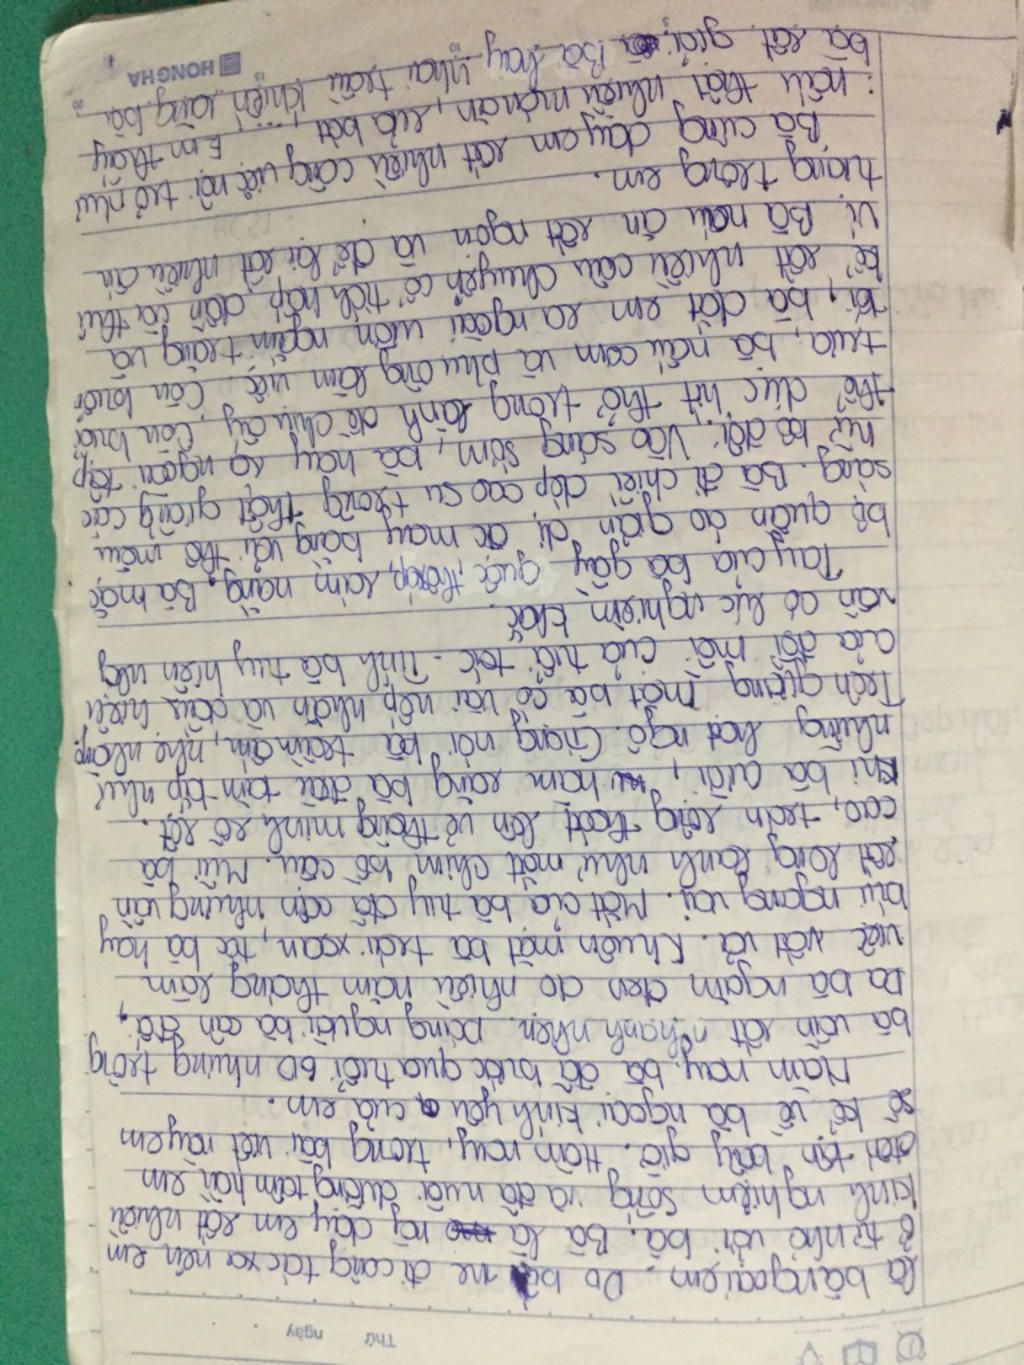 Thứ ngày
là bà ngoại em. Do bố mẹ đi công tác xa nên em
ở từ nhỏ với bà. Bà là dạy em rất nhiều
kinh nghiệm sống và đã nuôi dưỡng tâm hồn em
đến tận bây giờ. Hôm nay, trong bài viết này em
sẽ kể về bà ngoại kính yêu của em.
Năm nay, bà đã bước qua tuổi 60 nhưng trông
bà vẫn rất nhanh nhẹn. Dáng người bà cân đối,
Da bà ngăm đen do nhiều năm tháng làm
việc vất vả. Khuôn mặt bà trái xoan, tóc bà hay
búi ngang vai. Mắt của bà tuy đã cận nhưng vẫn
rất long lanh như mắt chim bồ câu. Mũi bà
cao, trán rộng thoát lên vẻ thông minh rõ rệt.
Khi bà cười, hàm răng bà đều tăm tắp như
những hạt ngô. Giọng nói bà trầm ấm, nhẹ nhàng.
Trên gương mặt bà có vài nếp nhăn và dấu hiệu
của đồi mồi của tuổi tác. Tính bà tuy hiền nhưng
vẫn có lúc nghiêm khắc.
Tay của bà gầy guộc, lắm nắng. Bà mặc
bộ quần áo giản dị, may bằng vải thô màu
sáng. Bà đi chiếc dép cao su trông thật giống các
nữ bộ đội. Vào sáng sớm, bà hay ra ngoài tập
thể dục hít thở trong lành dễ chịu ấy. Còn buổi
trưa, bà nấu cơm và phụ ông làm việc. Còn buổi
tối, bà dắt em ra ngoài vườn ngắm trăng và
kể rất nhiều câu chuyện cổ tích hấp dẫn và thú
vị. Bà nấu ăn rất ngon và để lại rất nhiều ấn
tượng trong em.
Bà cũng dạy em rất nhiều công việc nội trợ như
: nấu thật nhiều món ăn, rửa bát,... Em thấy
bà rất giỏi. Bà hay nhai trầu khiến răng bà
HONG HA